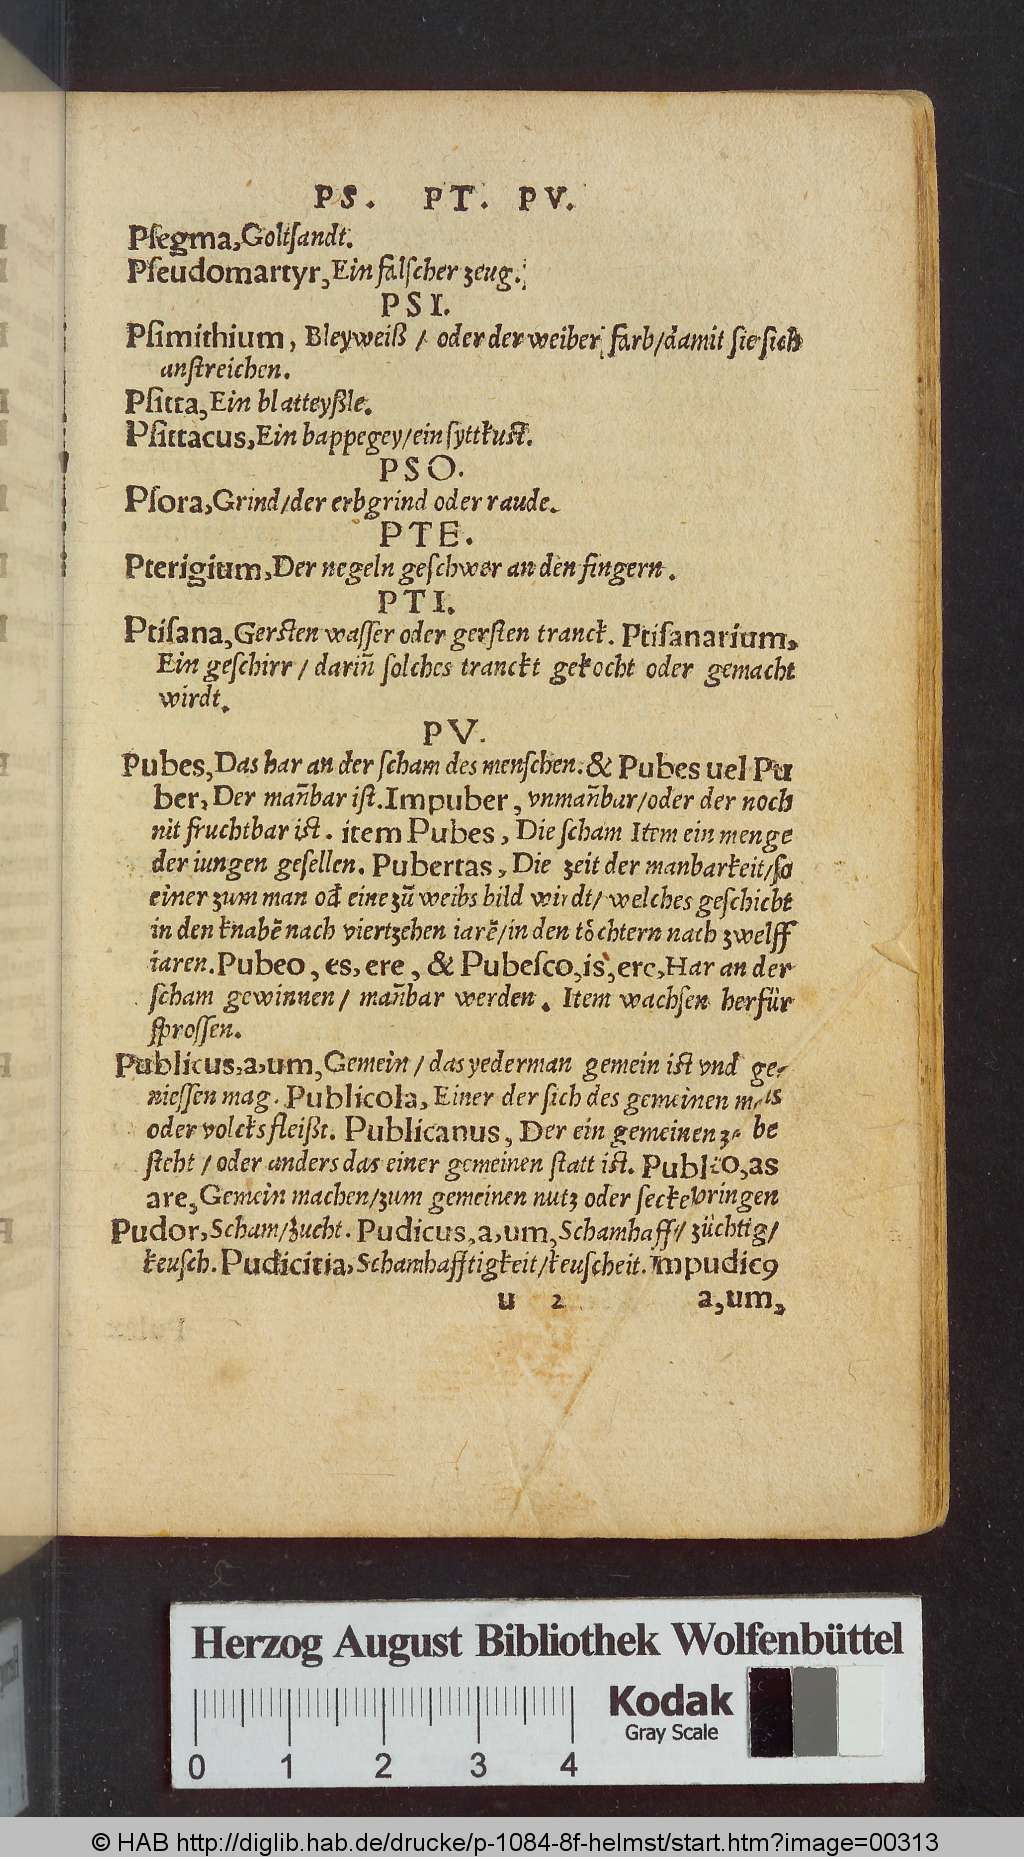 PS. PT. PV.
Pſegma, Goltſandt.
Pſeudomartyr, Ein falſcher zeug.
PSI.
Pſimithium, Bleyweiß / oder der weiber farb/damit ſie ſich
anſtreichen.
Pſitta, Ein blatteyßle.
Pſittacus, Ein bappegey/ein ſyttkuſt.
PSO.
Pſora, Grind/der erbgrind oder raude.
PTE.
Pterigium, Der negeln geſchwer an den fingern.
PTI.
Ptiſana, Gerſten waſſer oder gerſten tranck. Ptiſanarium,
Ein geſchirr / dariñ ſolches tranckt gekocht oder gemacht
wirdt.
PV.
Pubes, Das har an der ſcham des menſchen. & Pubes uel Pu
ber, Der mañbar iſt. Impuber, vnmañbar/oder der noch
nit fruchtbar iſt. item Pubes, Die ſcham Item ein menge
der iungen geſellen. Pubertas, Die zeit der manbarkeit/ſo
einer zum man od̄ eine zū weibs bild wirdt/ welches geſchicht
in den knabē nach viertzehen iarē/in den toͤchtern nach zwelff
iaren. Pubeo, es, ere, & Pubeſco, is, ere, Har an der
ſcham gewinnen / mañbar werden. Item wachſen herfür
ſproſſen.
Publicus, a, um, Gemein / das yederman gemein iſt vnd ge-
nieſſen mag. Publicola, Einer der ſich des gemeinen
oder volcks fleißt. Publicanus, Der ein gemeinen be
ſteht / oder anders das einer gemeinen ſtatt iſt. Publico, as
are, Gemein machen/zum gemeinen nutz oder ſeckel bringen
Pudor, Scham/Zucht. Pudicus, a, um, Schamhafft/ züchtig/
keuſch. Pudicitia, Schamhafftigkeit/keuſcheit. Impudicꝰ
u 2 a, um,
Herzog August Bibliothek Wolfenbüttel
Kodak
Gray Scale
0 1 2 3 4
© HAB http://diglib.hab.de/drucke/p-1084-8f-helmst/start.htm?image=00313